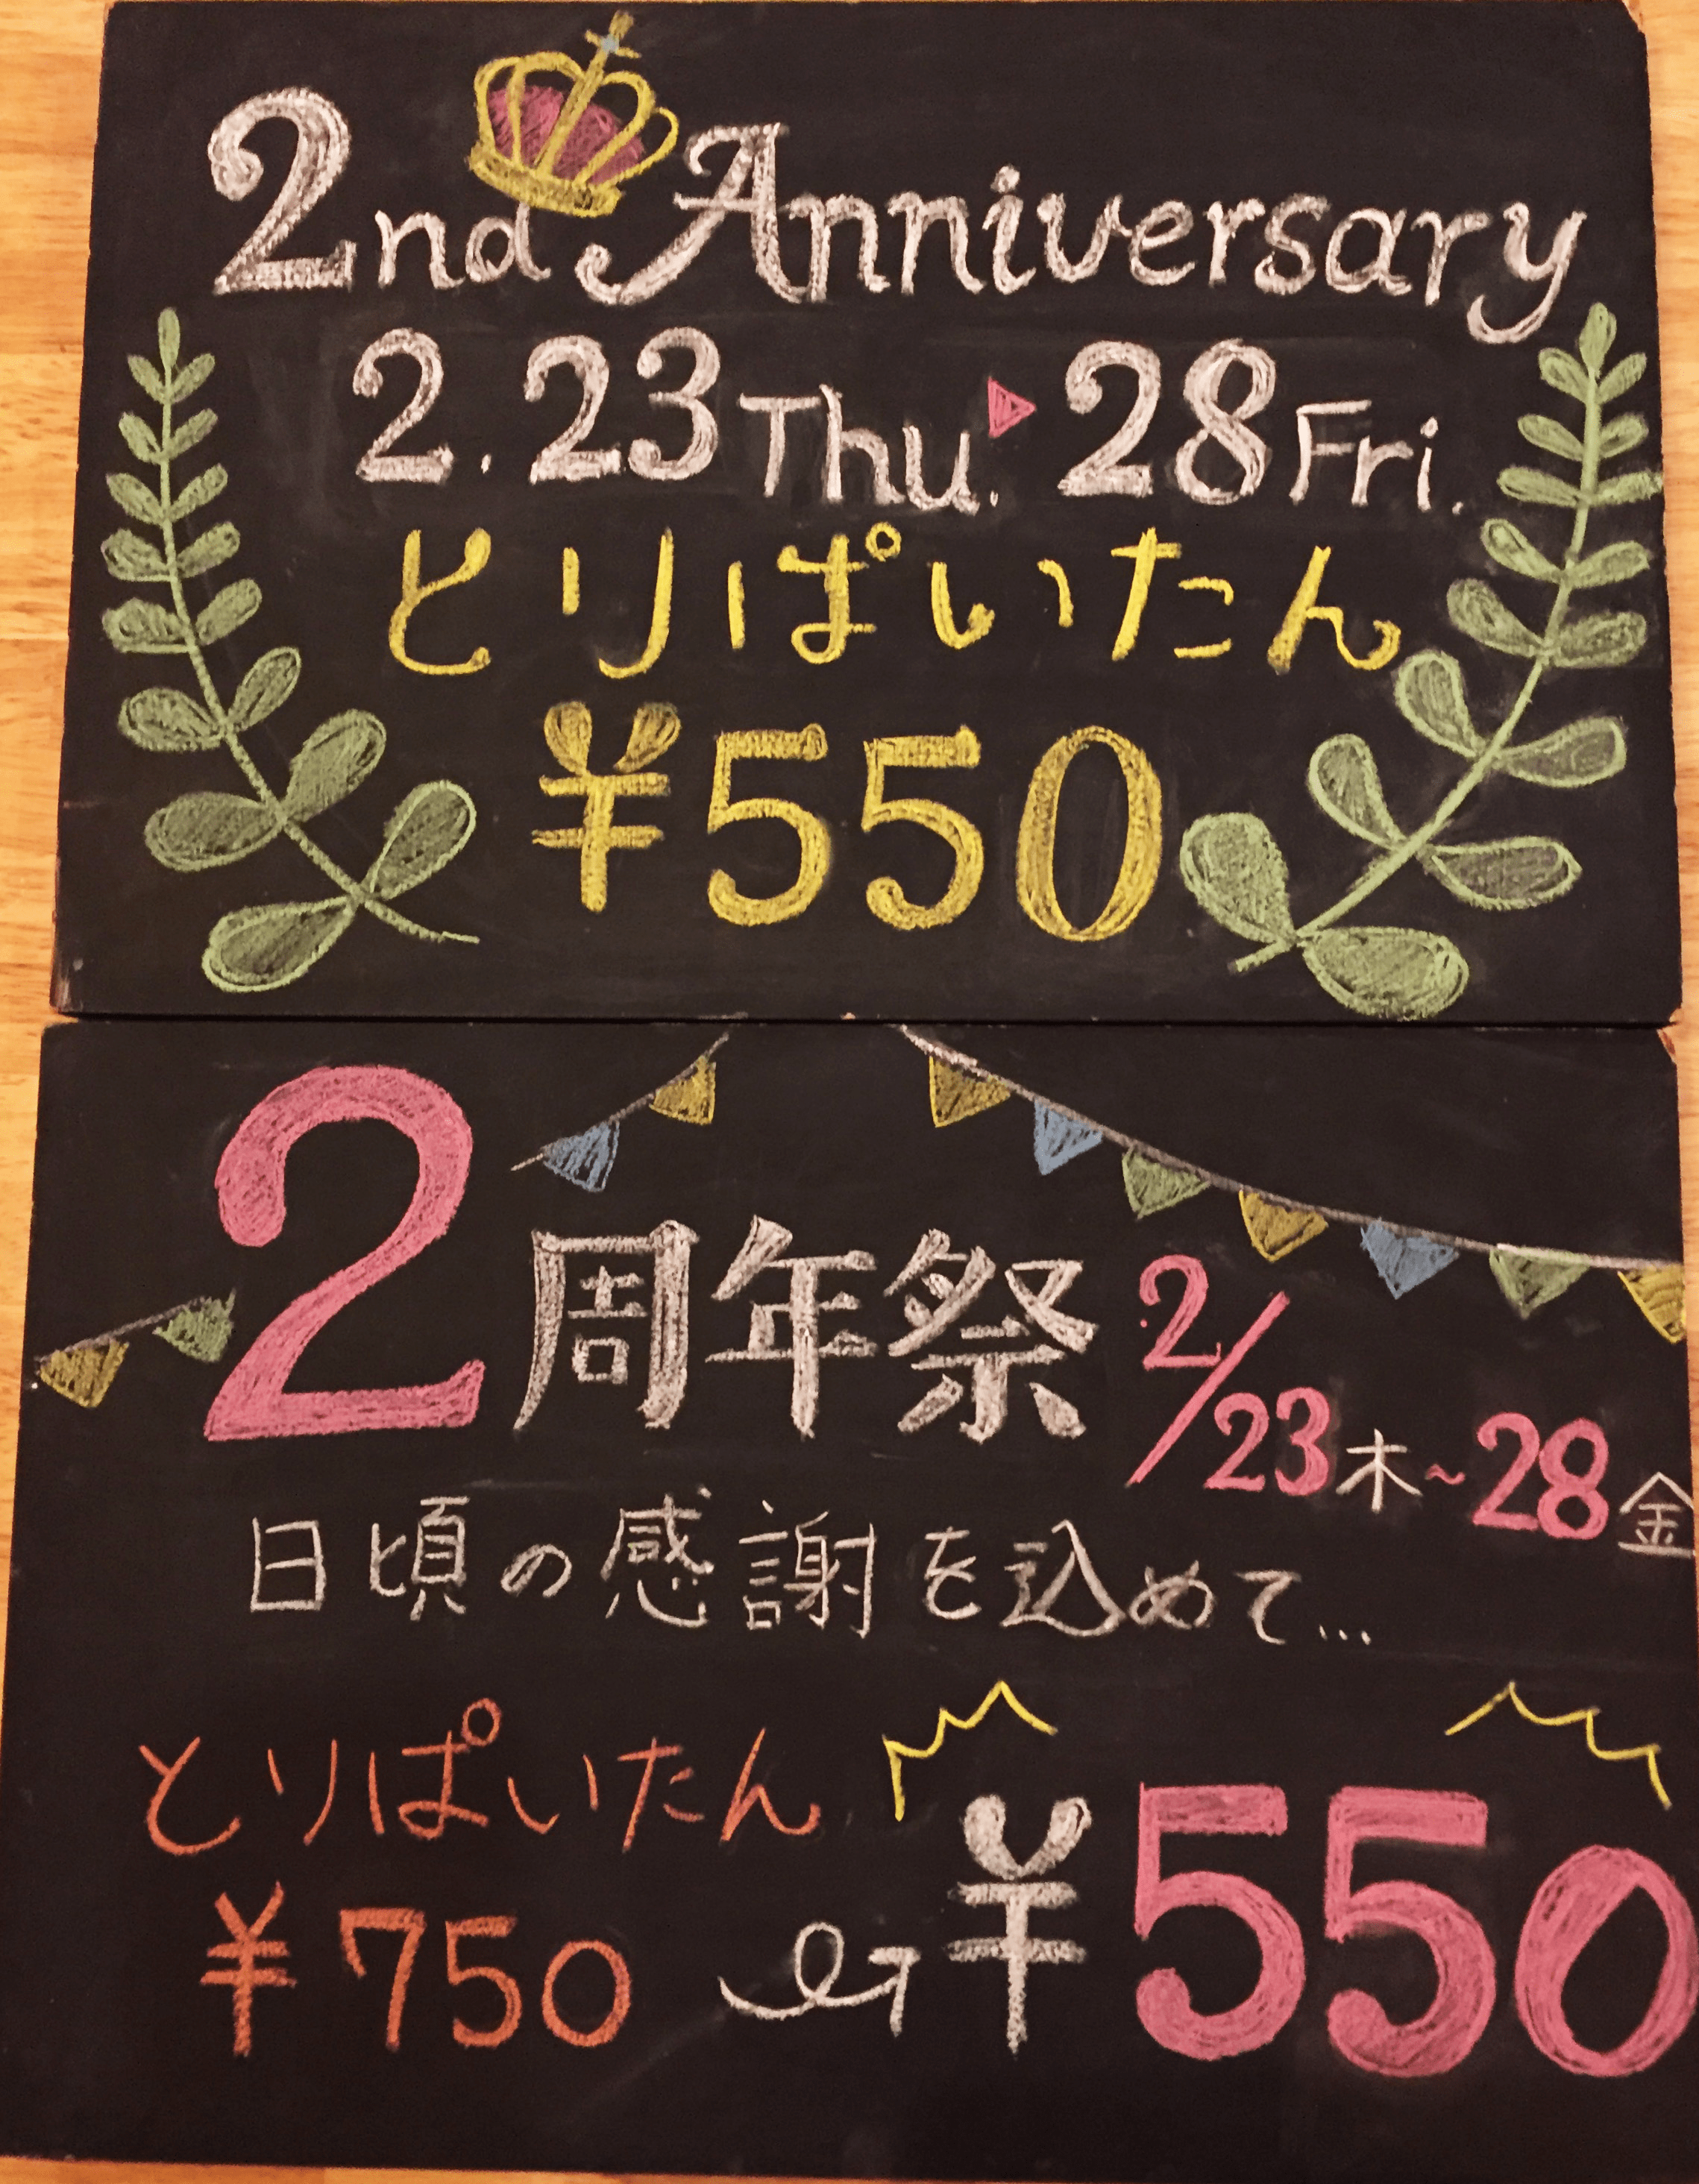 2nd Anniversary
2.23Thu.▶28Fri.
とりぱいたん
¥550
2周年祭 2/23木~28金
日頃の感謝を込めて...
とりぱいたん
¥750 → ¥550